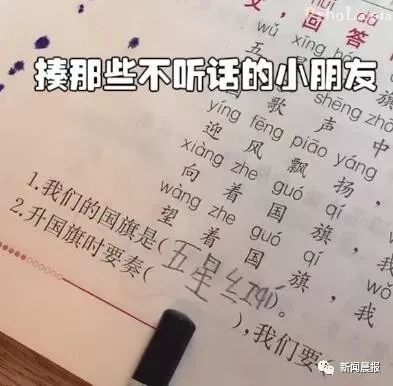 文，回答
wǔ xīng hó
揍那些不听话的小朋友
旗
shēng zhō
歌声中
yíng fēng piāo yáng
迎风飘扬，
xiàng zhe guó qí
向着国旗，我
wàng zhe guó qí wǒ
望着国旗，我
1.我们的国旗是(五星红)。
2.升国旗时要奏( ),我们要
新闻晨报